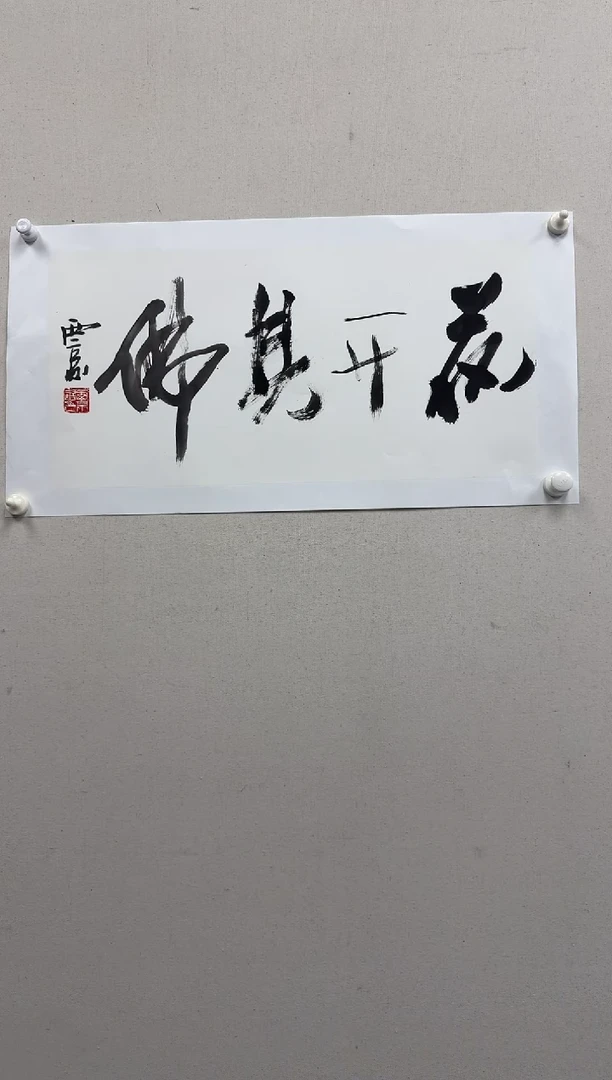 花开见佛